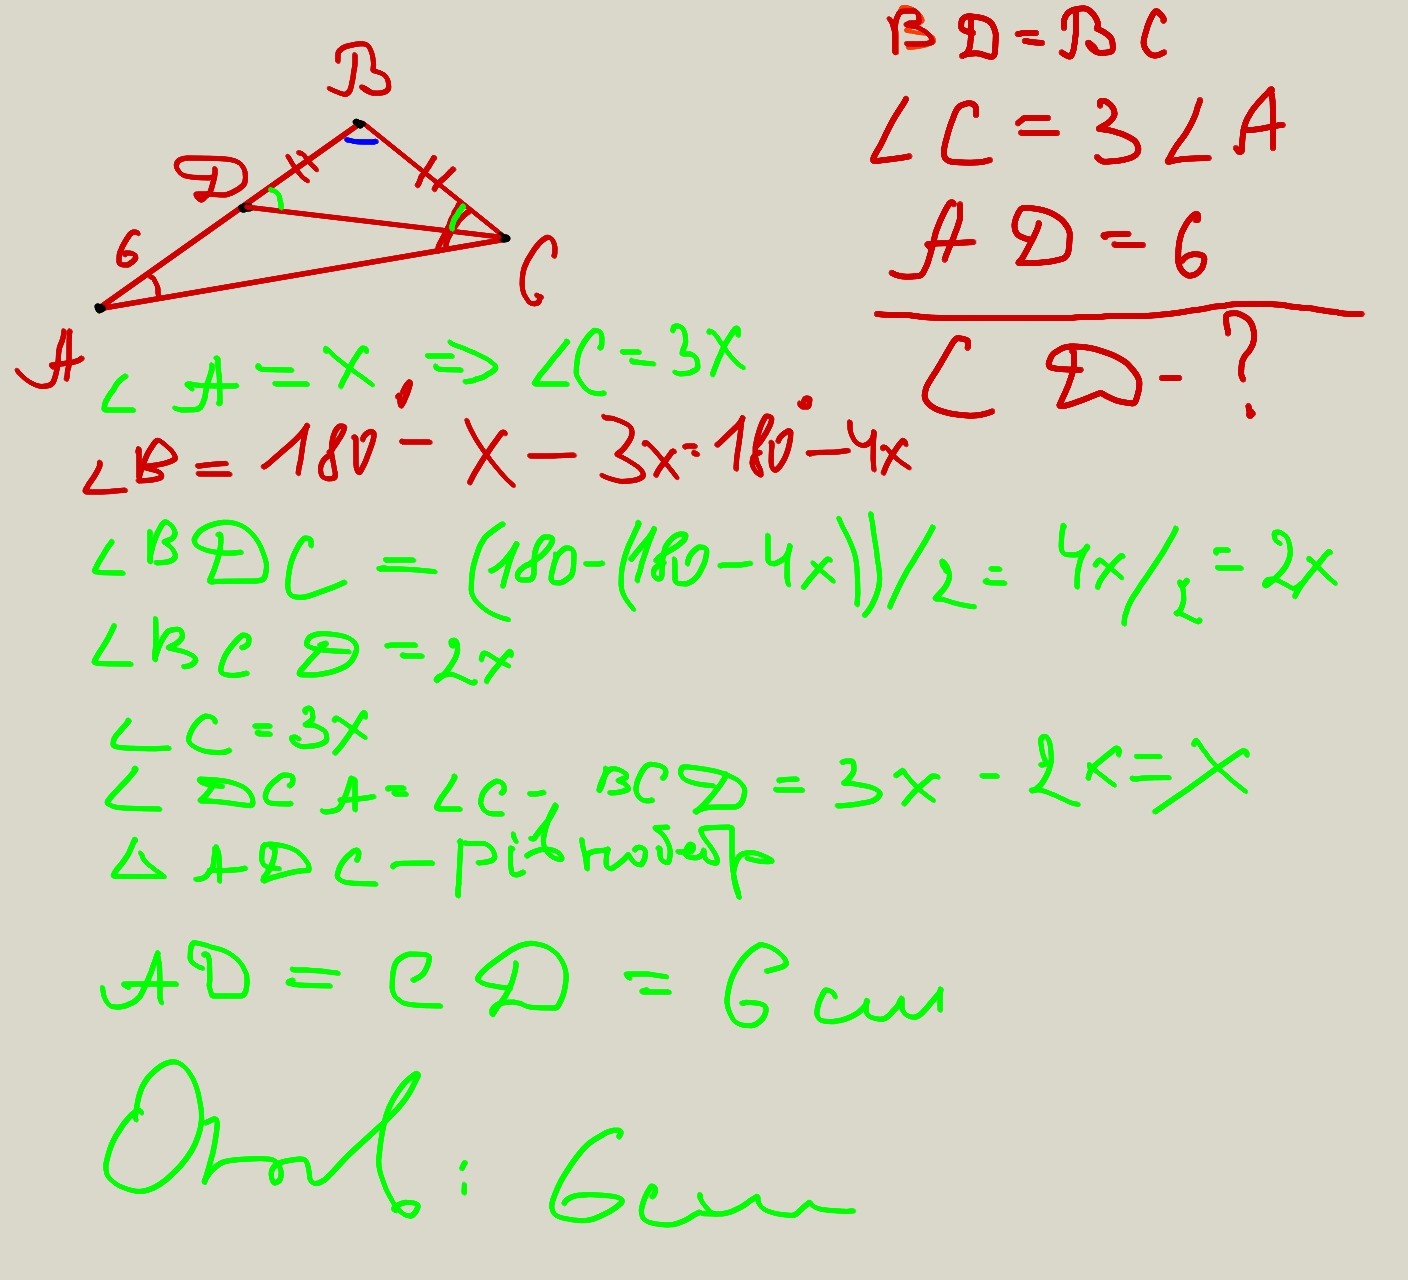 B
D
6
C
A
BD = BC
∠C = 3∠A
AD = 6
CD - ?
∠A = x => ∠C = 3x
∠B = 180° - x - 3x = 180° - 4x
∠BDC = (180 - (180 - 4x))/2 = 4x/2 = 2x
∠BCD = 2x
∠C = 3x
∠DCA = ∠C - BCD = 3x - 2x = x
△ADC - рівнобедр
AD = CD = 6 см
Отв: 6 см